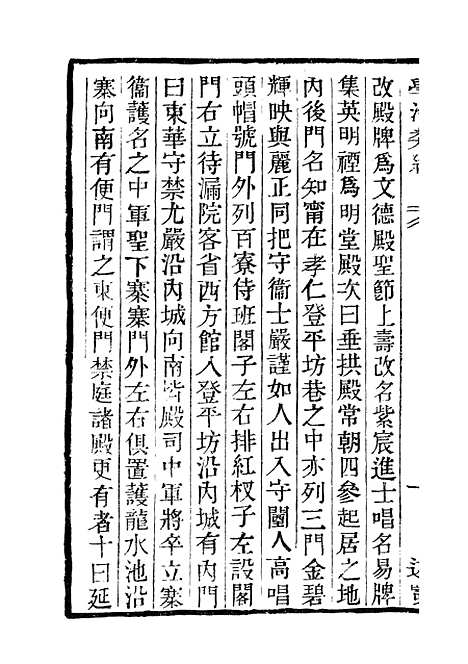 改殿牌爲文德殿聖節上壽改名紫宸進士唱名易牌
集英明禋爲明堂殿次曰垂拱殿常朝四參起居之地
內後門名和甯在孝仁登平坊巷之中亦列三門金碧
輝映與麗正同把守衞士嚴謹如人出入守闉人高唱
頭帽號門外列百寮侍班閣子左右排紅杈子左設閣
門右立待漏院客省西方館人登平坊沿內城有內門
曰東華守禁尤嚴沿內城向南皆殿司中軍將卒立寨
衞護名之中軍聖下寨寨門外左右俱置護龍水池沿
寨向南有便門謂之東便門禁庭諸殿更有者十曰延